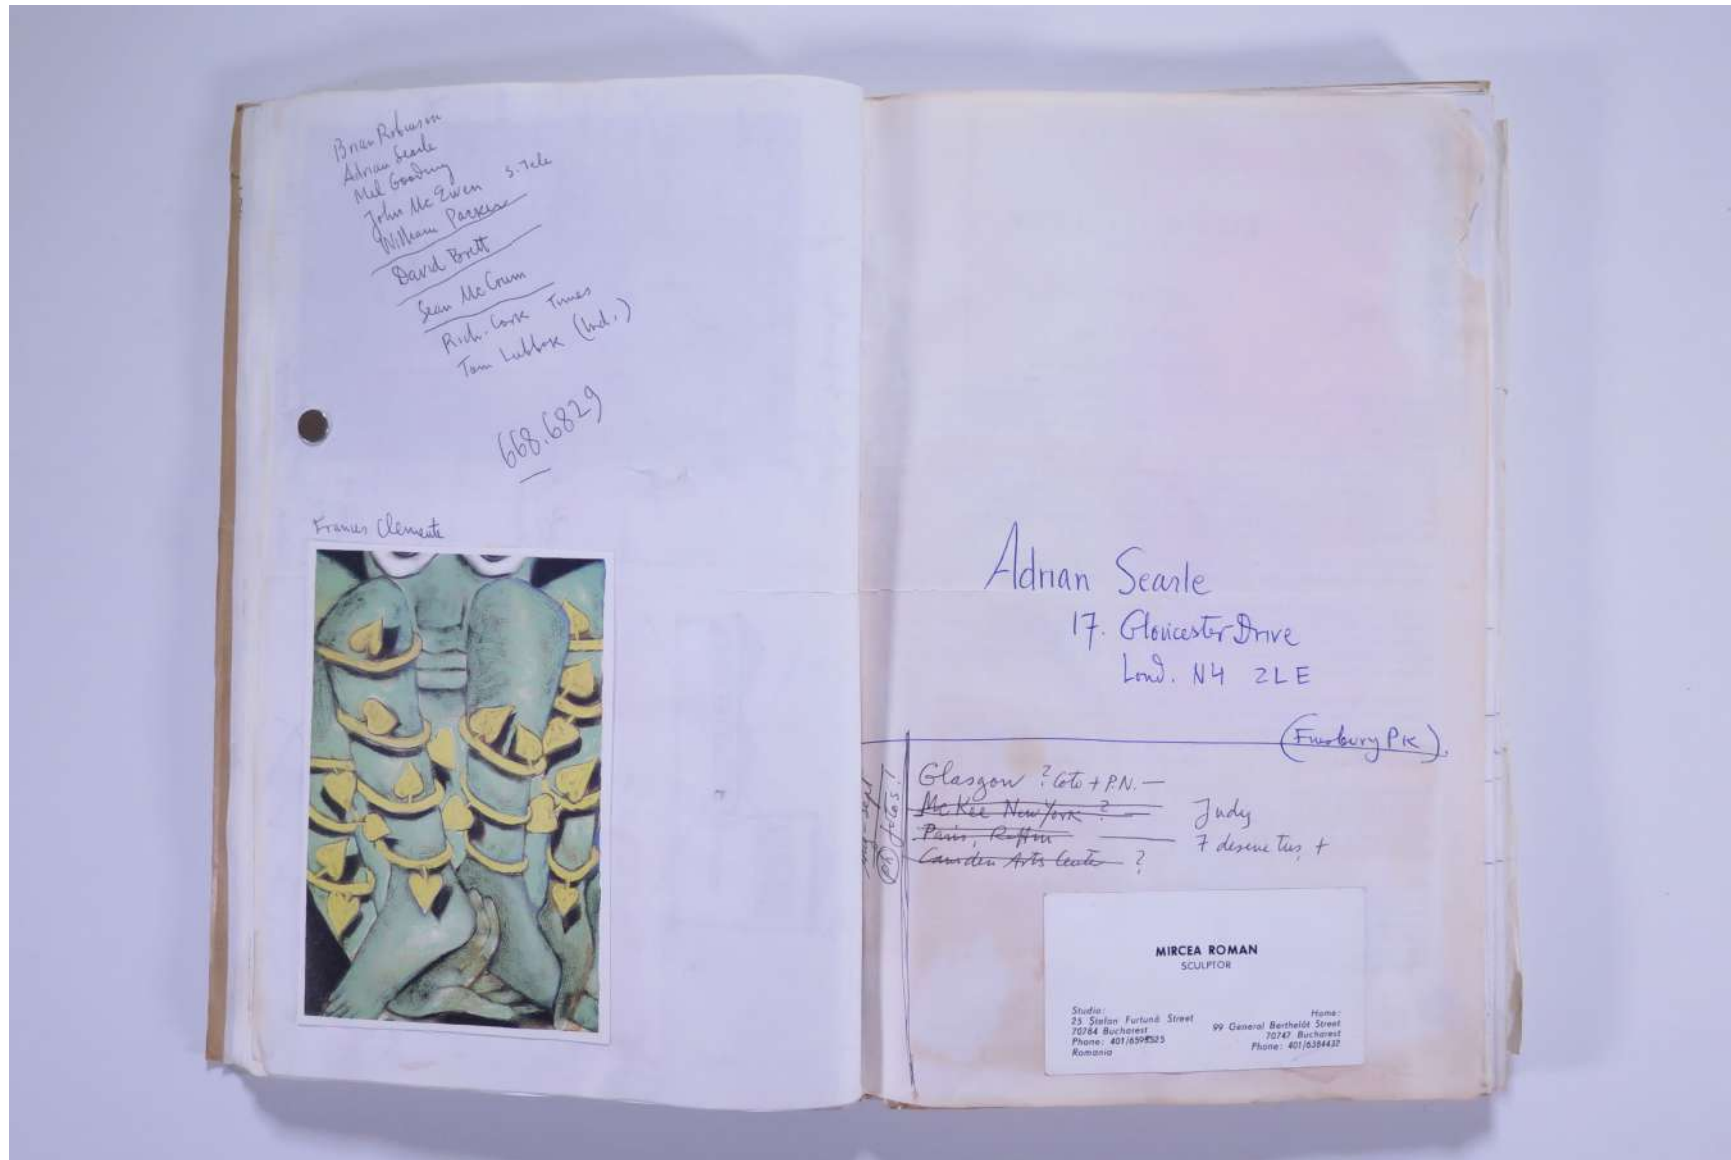 Brian Robinson
Adrian Searle
Mel Gooding
John McEwen S. Tele
William Parker
David Brett
Sean McCrum
Rich. Cork Times
Tom Lubbok (Ind.)
668.6829
Frances Clemente
Adrian Searle
17. Gloucester Drive
Lond. N4 2LE
(Finsbury Pk).
fotos!
Glasgow ? Coto + P.N. —
McKee New York ?
Judy
Paris,
7 desene tuș +
Camden Arts Cente ?
MIRCEA ROMAN
SCULPTOR
Studio:
25 Stefan Furtună Street
70784 Bucharest
Phone: 401/6595525
Romania
Home:
99 General Berthelót Street
70747 Bucharest
Phone: 401/6384432